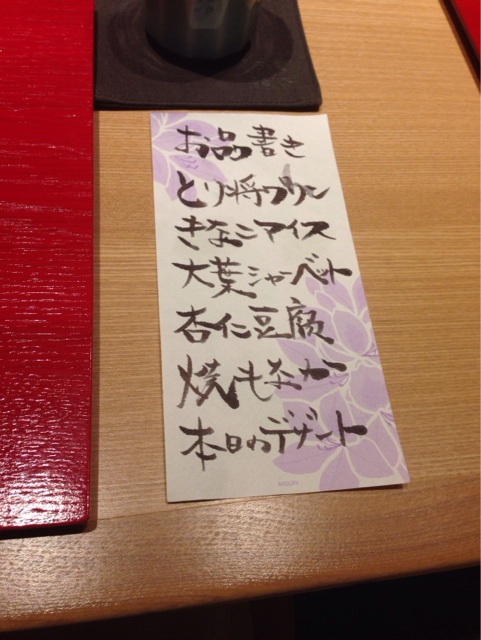 お品書き
とり将プリン
きなこアイス
大葉シャーベット
杏仁豆腐
焼もなか
本日のデザート